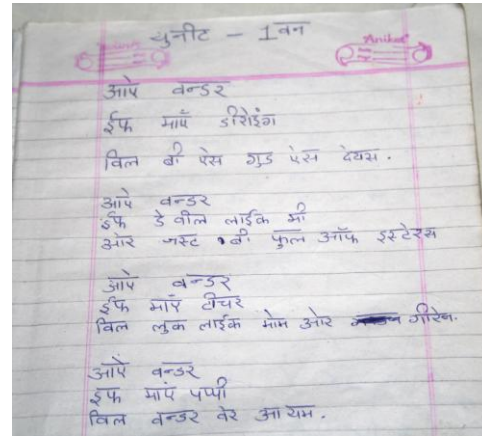 युनीट - 1 वन
Aniket
आपे वन्डर
ईफ मापॅ डीरोइंग
विल बी ऐस गुड ऐस देयस.
आपे वन्डर
ईफ डे वील लाईक मी
ओर जस्ट बी फुल ऑफ इस्टेरस
आपे वन्डर
ईफ मापॅ टीचर
विल लुक लाईक मोम ओर गीरेन.
आपे वन्डर
इफ मापॅ पप्पी
विल वन्डर वेर आयम.